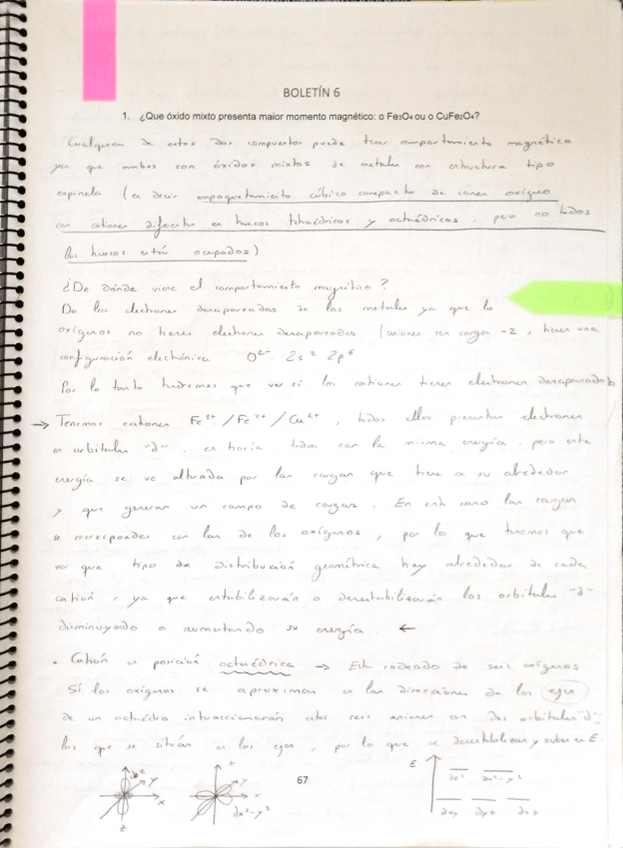 BOLETÍN 6
1. ¿Que óxido mixto presenta maior momento magnético: o Fe3O4 ou o CuFe2O4?
Cualquiera de estos dos compuestos puede tener comportamiento magnético
ya que ambos son óxidos mixtos de metales con estructura tipo
espinela (es decir empaquetamiento cúbico compacto de iones oxígeno
con cationes diferentes en huecos tetraédricos y octaédricos, pero no todos
los huecos están ocupados)
¿De dónde viene el comportamiento magnético?
De los electrones desapareados de los metales ya que los
oxígenos no tienen electrones desapareados (aniones con carga -2, tienen una
configuración electrónica O²⁻: 2s² 2p⁶
Por lo tanto tendremos que ver si los cationes tienen electrones desapareados
→ Tenemos cationes Fe³⁺/Fe²⁺/Cu²⁺, todos ellos presentan electrones
en orbitales "d", en teoría todos con la misma energía, pero esta
energía se ve alterada por las cargas que tiene a su alrededor
y que generan un campo de cargas. En este caso las cargas
se corresponden con las de los oxígenos, por lo que tenemos que
ver que tipo de distribución geométrica hay alrededor de cada
catión, ya que estabilizarán o desestabilizarán los orbitales "d"
disminuyendo o aumentando su energía. ←
• Catión en posición octaédrica → Está rodeado de seis oxígenos
Si los oxígenos se aproximan en las direcciones de los ejes
de un octaedro interaccionarán estos seis aniones con dos orbitales "d":
los que se sitúan en los ejes, por lo que se desestabilizan y suben en E.
dz² y x z
z y x dx²-y²
E dz² dx²-y²
dxy dyz dxz
67